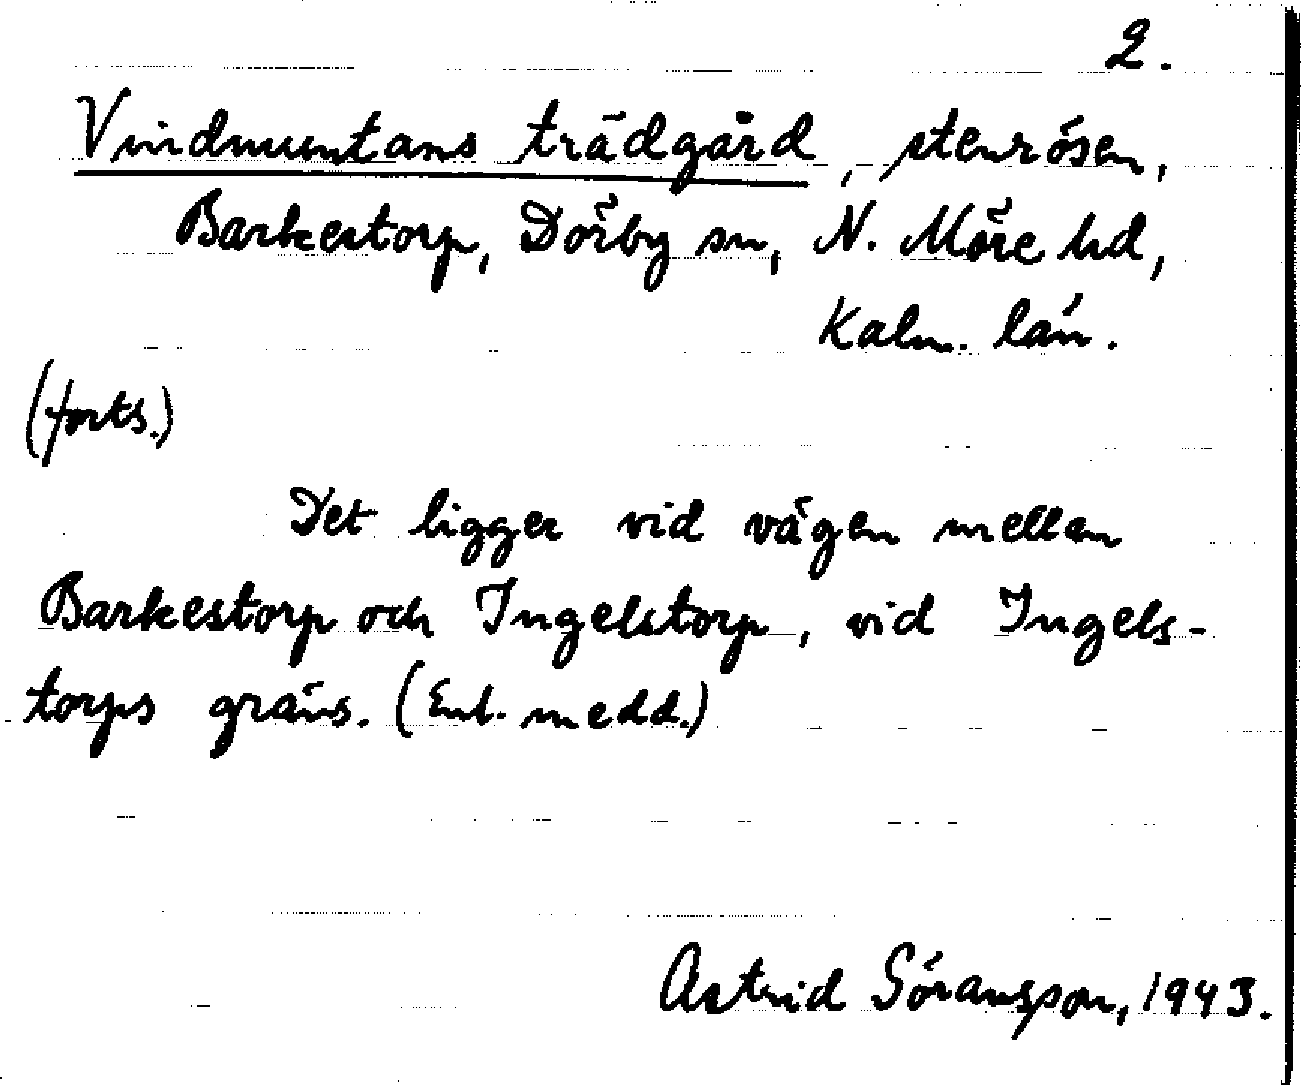 2.
Vindmuntans trädgård, stenrösen,
Barkestorp, Dörby sn, N. Möre hd,
Kalm. län.
(forts.)
Det ligger vid vägen mellan
Barkestorp och Ingelstorp, vid Ingels-
torps gräns. (Enl. medd.)
Astrid Göransson, 1943.